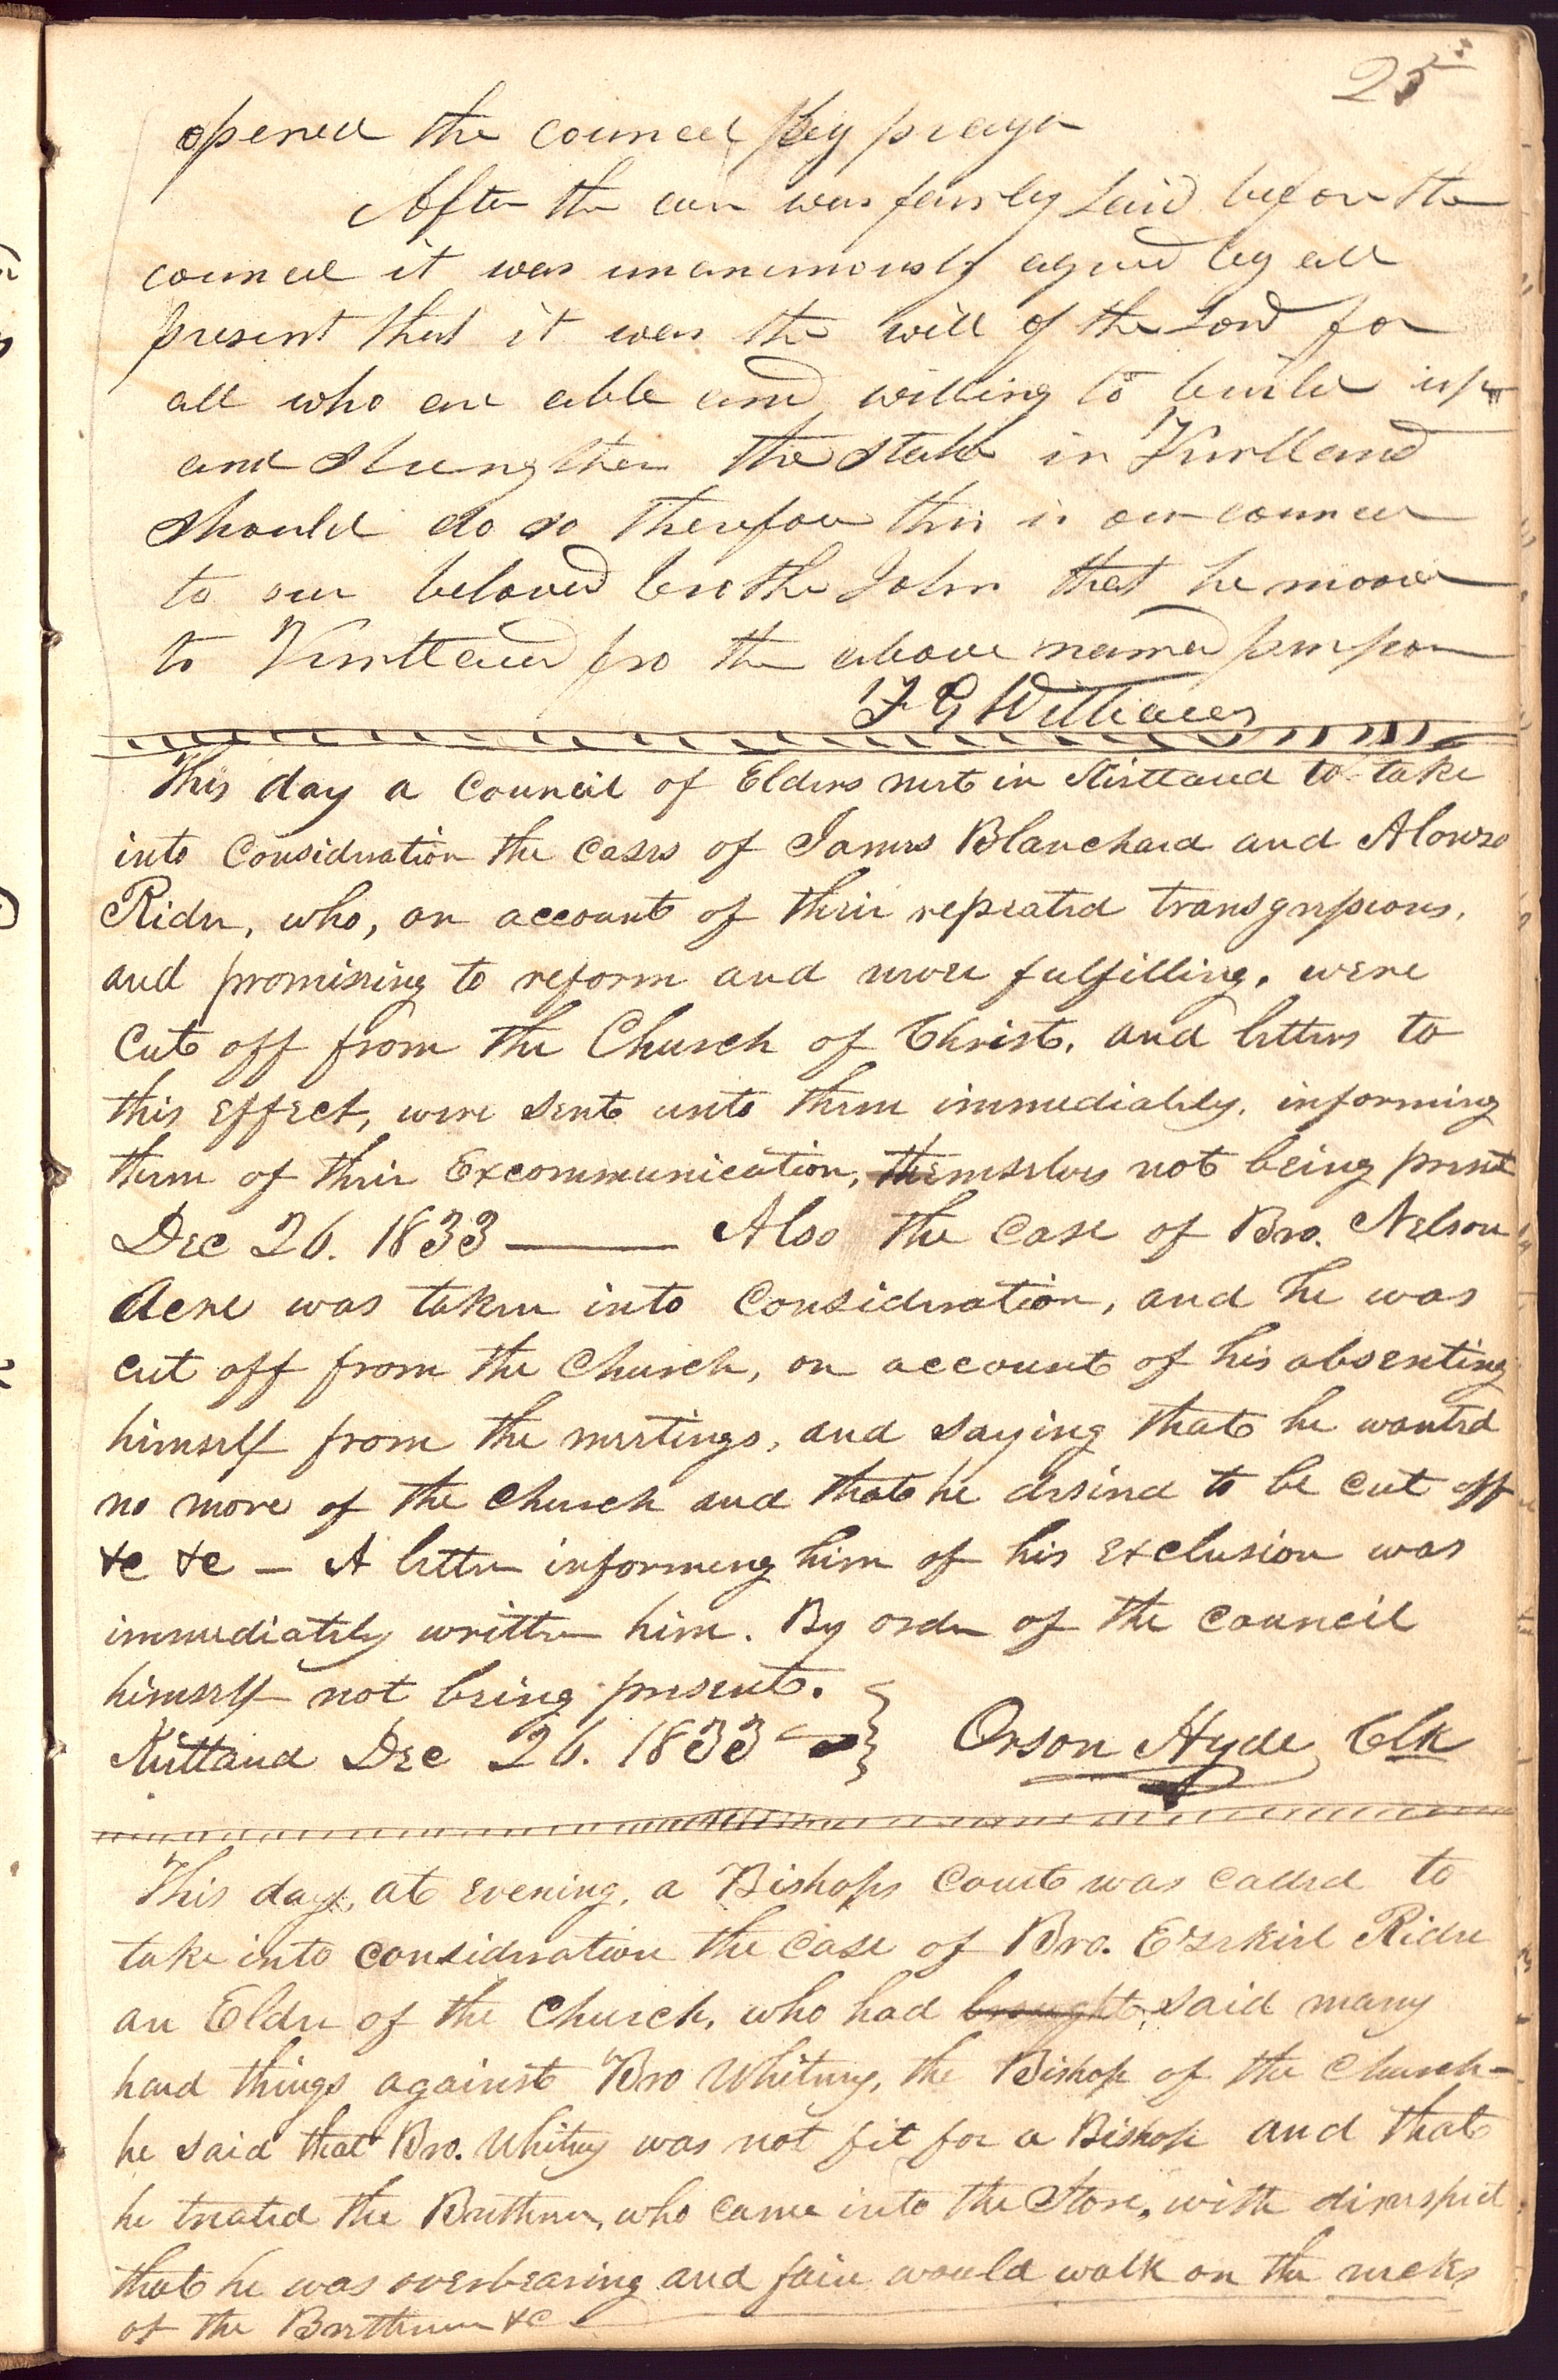 25
opened the councel by prayr
After the case was fairly Laid before the
councel it was unanimously agreed by all
present that it was the will of the Lord for
all who are able and willing to build up
and strengthen the stake in Kirtland
should do so therefore this is our councel
to our beloved brother John that he moove
to Kirtland fro the above named purpose
F G Williams
This day a council of Elders met in Kirtland to take
into consideration the cases of James Blanchard and Alonzo
Rider, who, on account of their repeated transgressions,
and promising to reform and never fulfilling, were
cut off from the Church of Christ, and letters to
this effect, were sent unto them immediately, informing
them of their Excommunication, themselves not being present
Dec 26. 1833 — Also the case of Bro. Nelson
Acre was taken into consideration, and he was
cut off from the Church, on account of his absenting
himself from the meetings, and saying that he wanted
no more of the church and that he desired to be cut off
&c &c – A letter informing him of his exclusion was
immediately written him. By order of the council
himself not being present.
Kirtland Dec 26. 1833 Orson Hyde Clk
This day, at evening, a Bishops court was called to
take into consideration the case of Bro. Ezekiel Rider
an Elder of the Church, who had brought said many
hard things against Bro Whitney, the Bishop of the Church –
he said that Bro. Whitney was not fit for a Bishop and that
he treated the Brethren, who came into the Store, with disrespect
that he was overbearing and fain would walk on the necks
of the Brethren &c